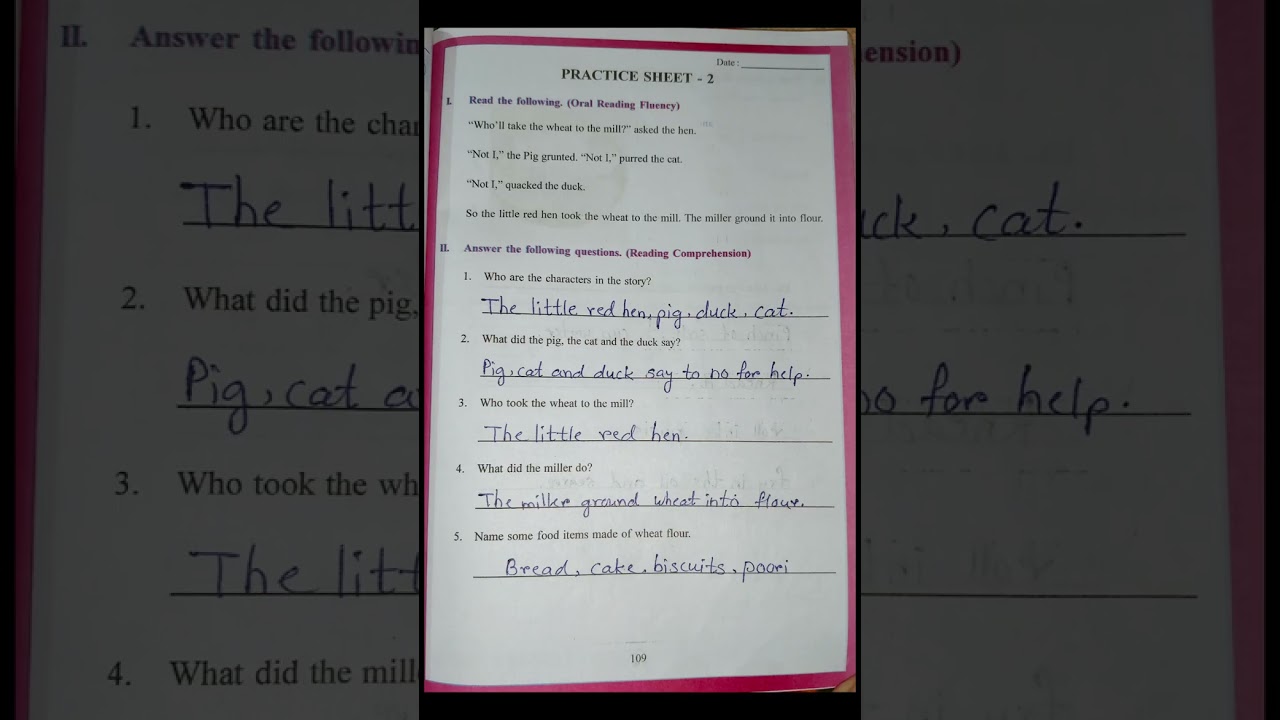 Date :
PRACTICE SHEET - 2
I. Read the following. (Oral Reading Fluency)
"Who'll take the wheat to the mill?" asked the hen.
"Not I," the Pig grunted. "Not I," purred the cat.
"Not I," quacked the duck.
So the little red hen took the wheat to the mill. The miller ground it into flour.
II. Answer the following questions. (Reading Comprehension)
1. Who are the characters in the story?
The little red hen, pig, duck, cat.
2. What did the pig, the cat and the duck say?
Pig, cat and duck say to no for help.
3. Who took the wheat to the mill?
The little red hen.
4. What did the miller do?
The miller ground wheat into flour.
5. Name some food items made of wheat flour.
Bread, cake, biscuits, poori
109
II. Answer the followin
1. Who are the char
The litt
2. What did the pig,
Pig, cat a
3. Who took the wh
The litt
4. What did the mill
ension)
uck, cat.
no for help.